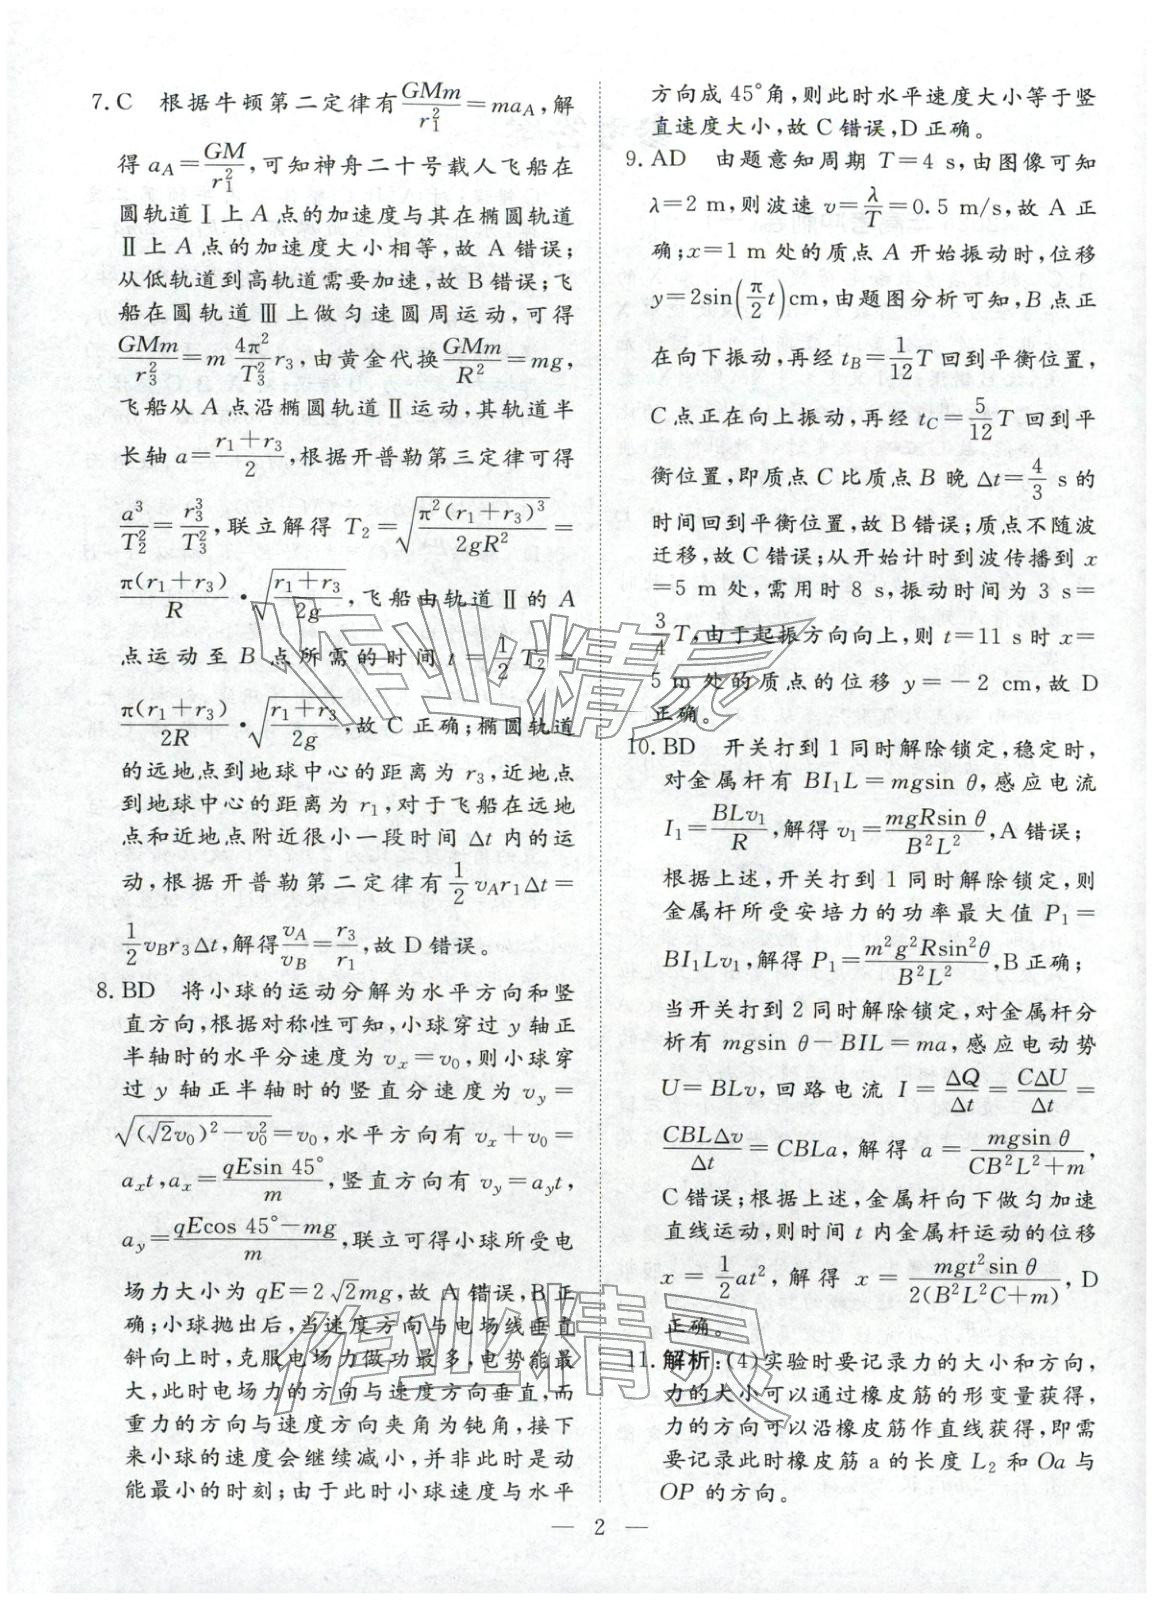 7. C 根据牛顿第二定律有$\frac{GMm}{r_1^2}=ma_A$,解
得 $a_A=\frac{GM}{r_1^2}$,可知神舟二十号载人飞船在
圆轨道Ⅰ上 A 点的加速度与其在椭圆轨道
Ⅱ上 A 点的加速度大小相等,故 A 错误;
从低轨道到高轨道需要加速,故 B 错误;飞
船在圆轨道Ⅲ上做匀速圆周运动,可得
$\frac{GMm}{r_3^2}=m\frac{4π^2}{T_3^2}r_3$,由黄金代换$\frac{GMm}{R^2}=mg$,
飞船从 A 点沿椭圆轨道Ⅱ运动,其轨道半
长轴 $a=\frac{r_1+r_3}{2}$,根据开普勒第三定律可得
$\frac{a^3}{T_2^2}=\frac{r_3^3}{T_3^2}$,联立解得 $T_2=\sqrt{\frac{π^2(r_1+r_3)^3}{2gR^2}}=$
$\frac{π(r_1+r_3)}{R}•\sqrt{\frac{r_1+r_3}{2g}}$,飞船由轨道Ⅱ的 A
点运动至 B 点所需的时间 $t=\frac{1}{2}T_2=$
$\frac{π(r_1+r_3)}{2R}•\sqrt{\frac{r_1+r_3}{2g}}$,故 C 正确;椭圆轨道
的远地点到地球中心的距离为 $r_3$,近地点
到地球中心的距离为 $r_1$,对于飞船在远地
点和近地点附近很小一段时间 Δt 内的运
动,根据开普勒第二定律有$\frac{1}{2}v_Ar_1Δt=$
$\frac{1}{2}v_Br_3Δt$,解得$\frac{v_A}{v_B}=\frac{r_3}{r_1}$,故 D 错误。
8. BD 将小球的运动分解为水平方向和竖
直方向,根据对称性可知,小球穿过 y 轴正
半轴时的水平分速度为 $v_x=v_0$,则小球穿
过 y 轴正半轴时的竖直分速度为 $v_y=$
$\sqrt{(\sqrt{2}v_0)^2-v_0^2}=v_0$,水平方向有 $v_x+v_0=$
$a_xt,a_x=\frac{qE\sin 45°}{m}$,竖直方向有 $v_y=a_yt$,
$a_y=\frac{qE\cos 45°-mg}{m}$,联立可得小球所受电
场力大小为 $qE=2\sqrt{2}mg$,故 A 错误,B 正
确;小球抛出后,当速度方向与电场线垂直
斜向上时,克服电场力做功最多,电势能最
大,此时电场力的方向与速度方向垂直,而
重力的方向与速度方向夹角为钝角,接下
来小球的速度会继续减小,并非此时是动
能最小的时刻;由于此时小球速度与水平
方向成 45°角,则此时水平速度大小等于竖
直速度大小,故 C 错误,D 正确。
9. AD 由题意知周期 T=4 s,由图像可知
λ=2 m,则波速 $v=\frac{λ}{T}=0.5$ m/s,故 A 正
确;x=1 m 处的质点 A 开始振动时,位移
$y=2\sin\left(\frac{π}{2}t\right)$cm,由题图分析可知,B 点正
在向下振动,再经 $t_B=\frac{1}{12}T$ 回到平衡位置,
C 点正在向上振动,再经 $t_C=\frac{5}{12}T$ 回到平
衡位置,即质点 C 比质点 B 晚 $Δt=\frac{4}{3}$ s 的
时间回到平衡位置,故 B 错误;质点不随波
迁移,故 C 错误;从开始计时到波传播到 x
=5 m 处,需用时 8 s,振动时间为 3 s=
$\frac{3}{4}T$,由于起振方向向上,则 t=11 s 时 x=
5 m 处的质点的位移 y=-2 cm,故 D
正确。
10. BD 开关打到 1 同时解除锁定,稳定时,
对金属杆有 $BI_1L=mg\sin θ$,感应电流
$I_1=\frac{BLv_1}{R}$,解得 $v_1=\frac{mgR\sin θ}{B^2L^2}$,A 错误;
根据上述,开关打到 1 同时解除锁定,则
金属杆所受安培力的功率最大值 $P_1=$
$BI_1Lv_1$,解得 $P_1=\frac{m^2g^2R\sin^2θ}{B^2L^2}$,B 正确;
当开关打到 2 同时解除锁定,对金属杆分
析有 $mg\sin θ-BIL=ma$,感应电动势
$U=BLv$,回路电流 $I=\frac{ΔQ}{Δt}=\frac{CΔU}{Δt}=$
$\frac{CBLΔv}{Δt}=CBLa$,解得 $a=\frac{mg\sin θ}{CB^2L^2+m}$,
C 错误;根据上述,金属杆向下做匀加速
直线运动,则时间 t 内金属杆运动的位移
$x=\frac{1}{2}at^2$,解得 $x=\frac{mgt^2\sin θ}{2(B^2L^2C+m)}$,D
正确。
11. 解析:(4)实验时要记录力的大小和方向,
力的大小可以通过橡皮筋的形变量获得,
力的方向可以沿橡皮筋作直线获得,即需
要记录此时橡皮筋 a 的长度 $L_2$ 和 Oa 与
OP 的方向。
— 2 —
作业精灵
作业精灵